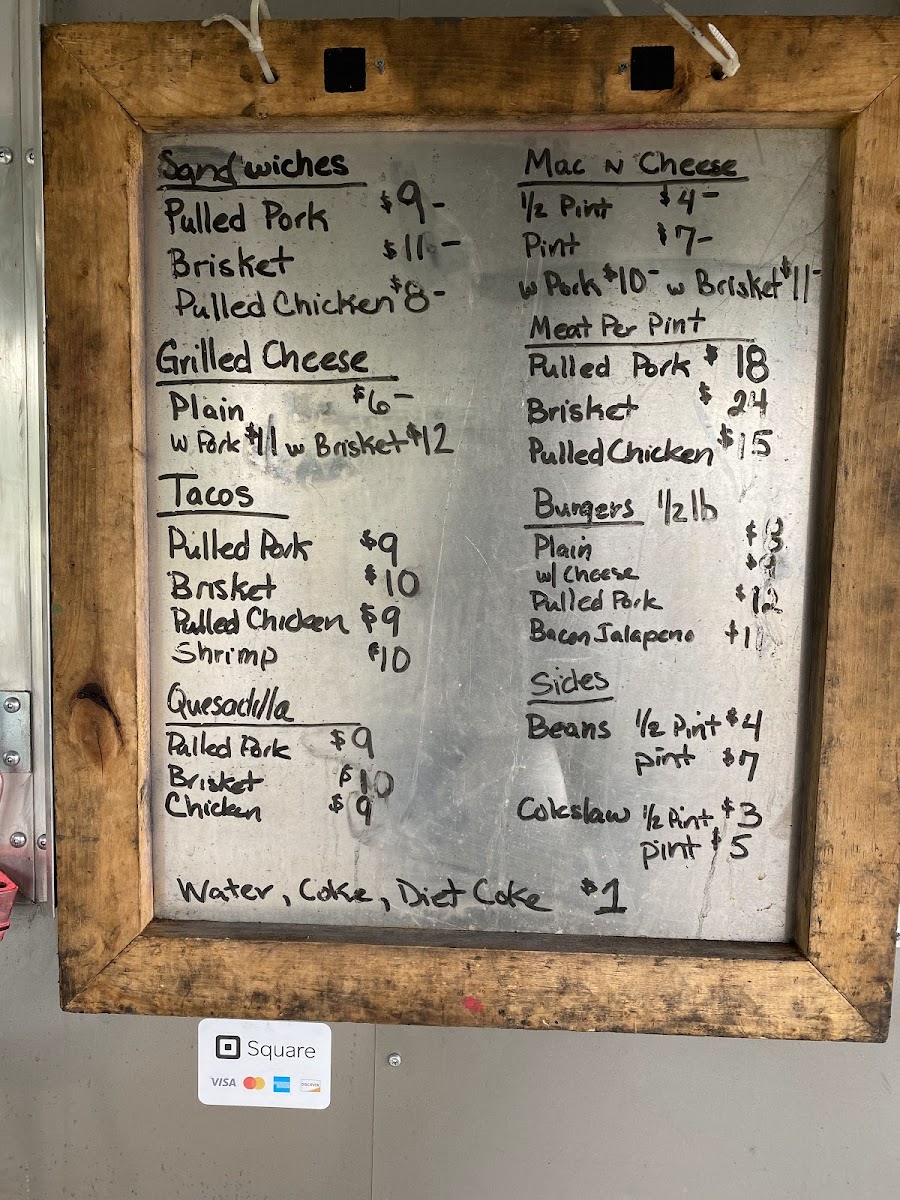 Sandwiches
Pulled Pork $9-
Brisket $11-
Pulled Chicken $8-
Grilled Cheese
Plain $6-
w Pork $11 w Brisket $12
Tacos
Pulled Pork $9
Brisket $10
Pulled Chicken $9
Shrimp $10
Quesadilla
Pulled Pork $9
Brisket $10
Chicken $9
Mac N Cheese
1/2 Pint $4-
Pint $7-
w Pork $10- w Brisket $11-
Meat Per Pint
Pulled Pork $18
Brisket $24
Pulled Chicken $15
Burgers 1/2 lb
Plain
w/ Cheese
Pulled Pork $12
Bacon Jalapeno
Sides
Beans 1/2 Pint $4
pint $7
Coleslaw 1/2 Pint $3
pint $5
Water, Coke, Diet Coke $1
Square
VISA
DISCOVER